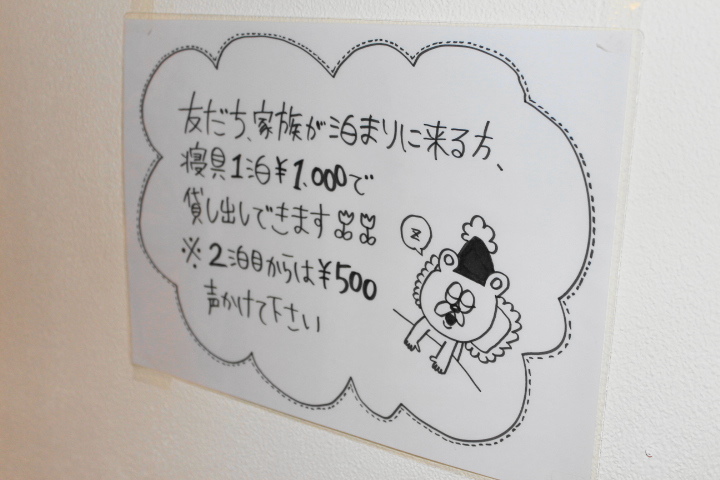 友だち、家族が泊まりに来る方、
寝具1泊¥1,000で
貸し出しできます
※2泊目からは¥500
声かけて下さい
z